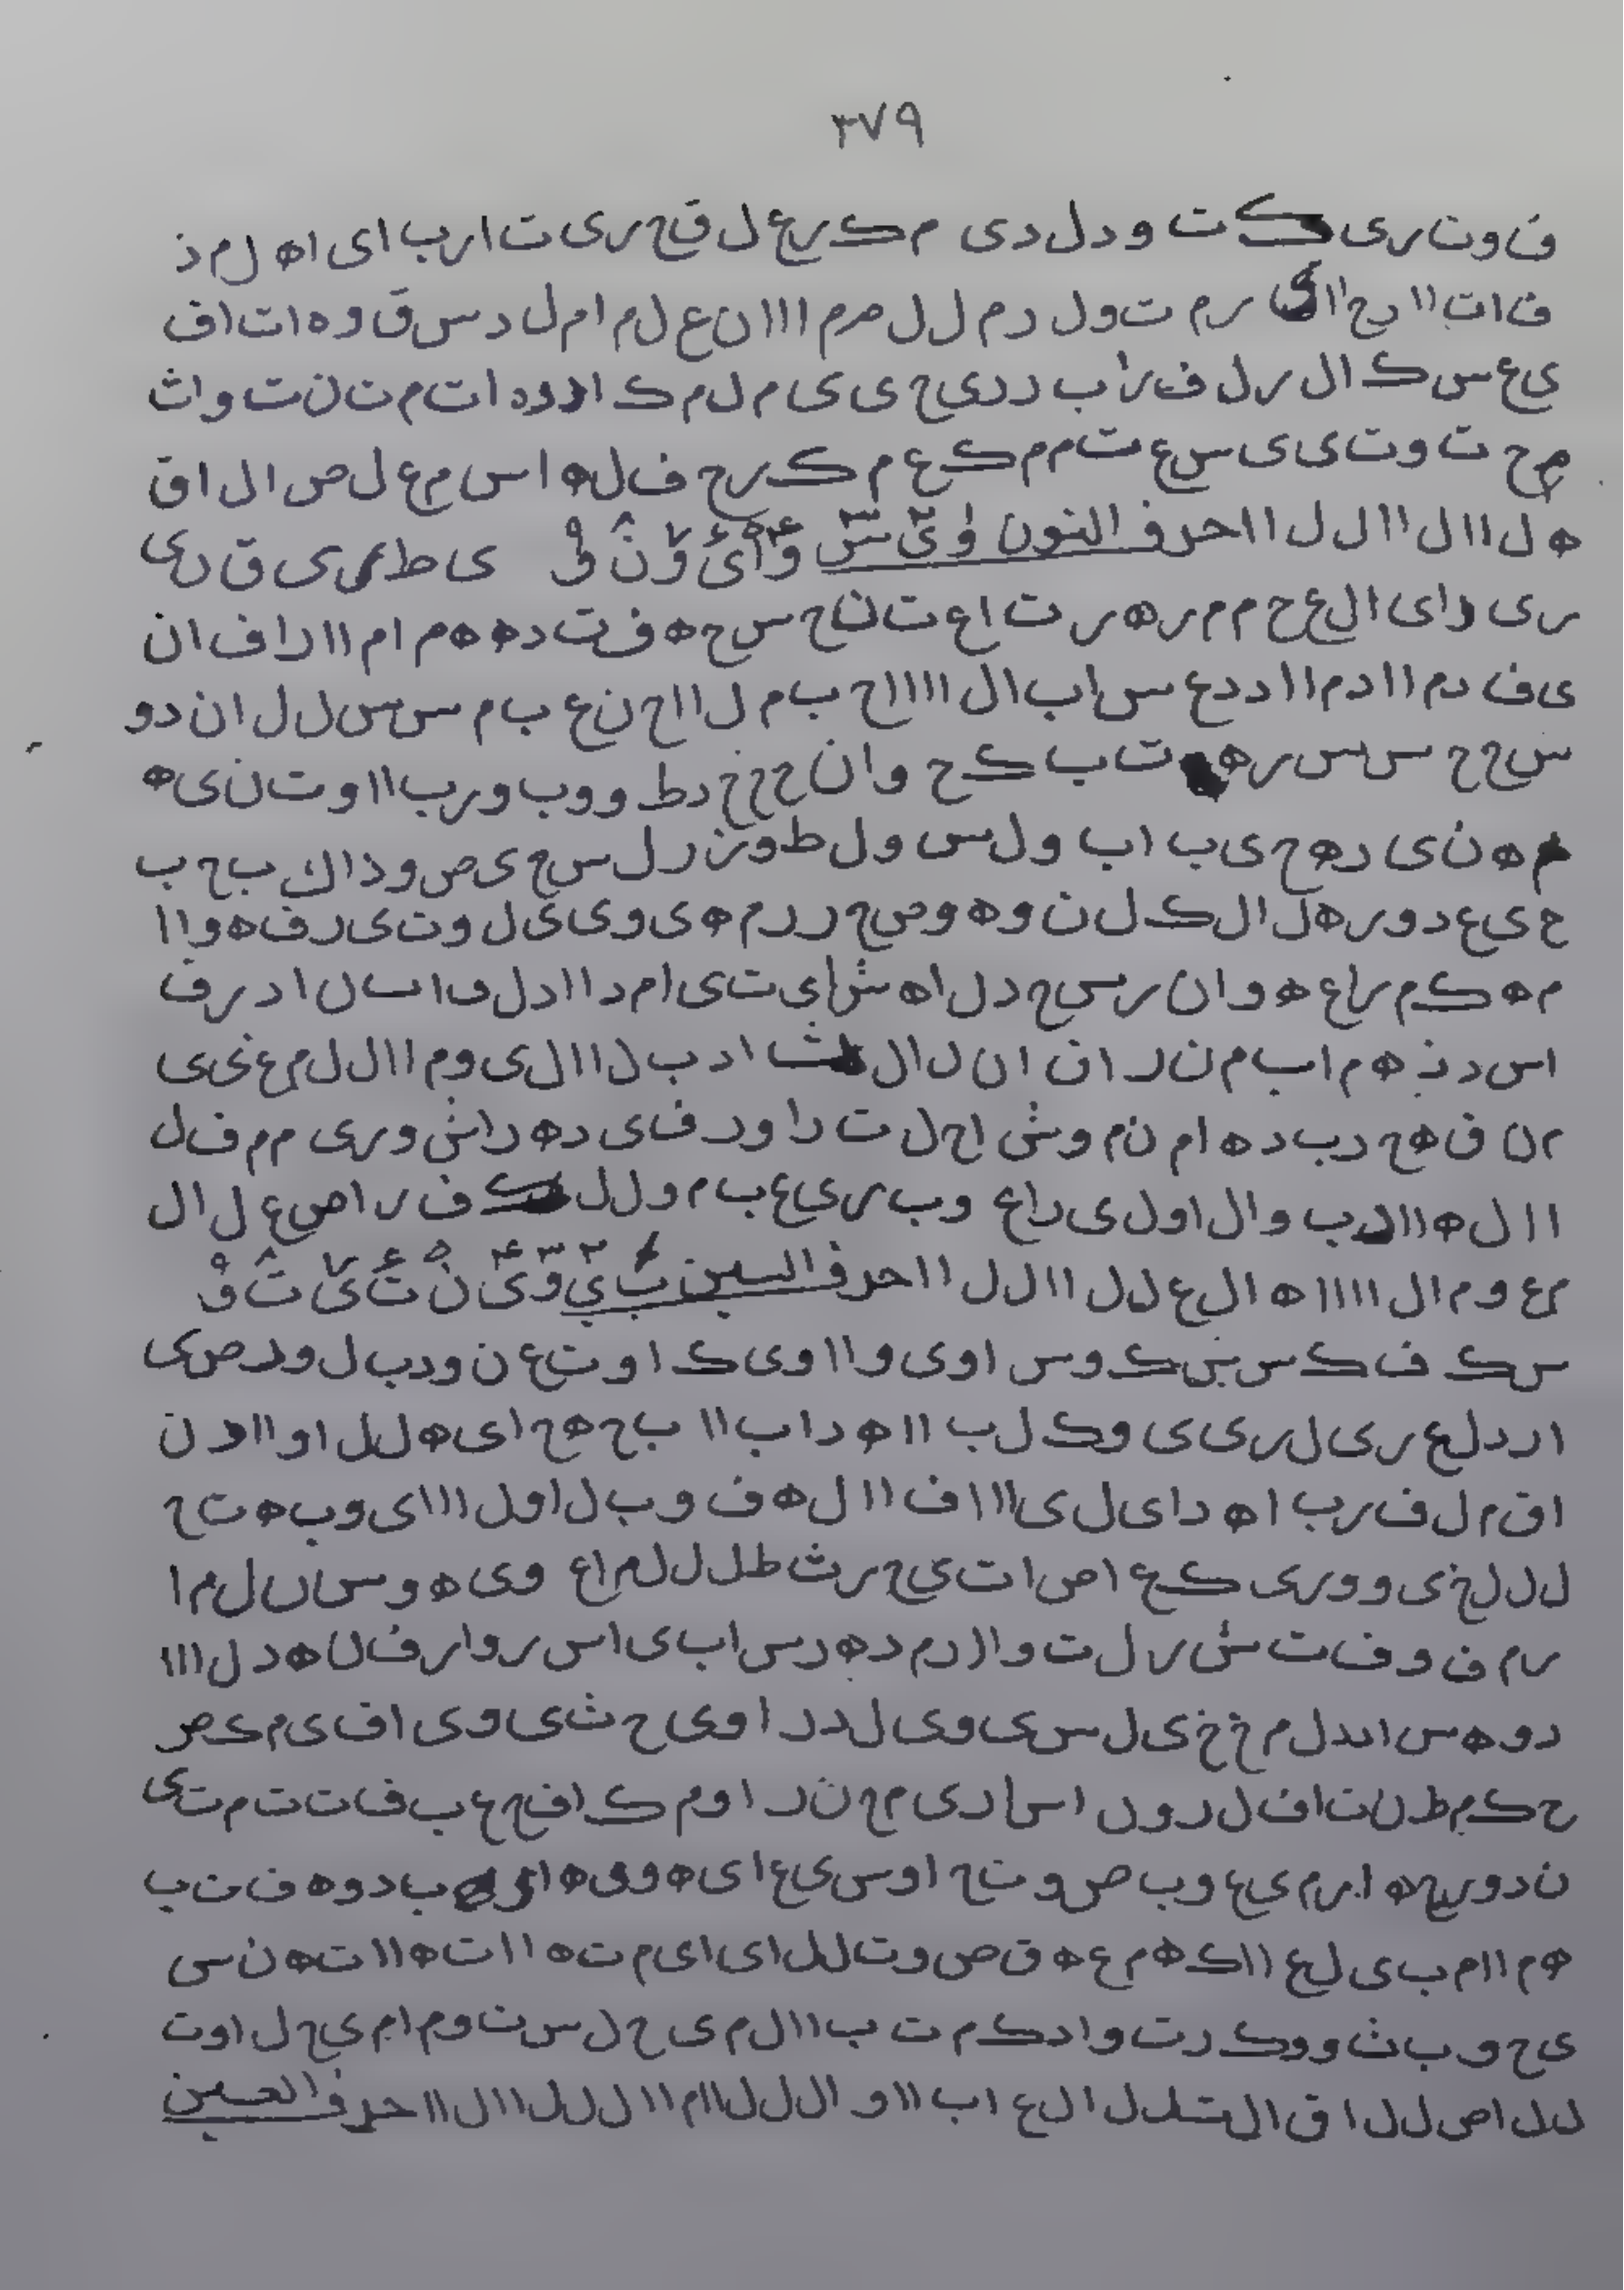 ٣٧٩
ف و ت ر ی ك ت و د ل د ی م ك ر ع ل ق ح ر ی ت ا ر ب ا ی ا ه ل م ذ
ف ا ت ا ا ر م ت و ل د م ل ل م ر م ا ا ا ن ع ل م ا م ل د س ق و ه ا ت ا ف
ی ع س ك ا ل ر ل ف ر ا ب د د ی ح ی ی م ل م ك ا ا ت م ت ن ت و ا ث
ح ت و ت ی ی س ع ت م م ك ع م ك ر ح ف ل ه ا س م ع ل ص ا ل ا ق
ه ل ا ا ل ا ا ل ل ا ا حرف النون و ی س و ا ی و ن و ی ط ی ق ر ی
ر ی د ا ی ا ل ع ح م م ر ه ر ت ا ع ت ن ح س ح ه ف ت د ه ه م ا م ا ا د ا ف ا ن
ی ف د م ا ا د م ا ا د د ع س ا ب ا ل ا ا ا ا ح ب م ل ا ا ح ن ع ب م س س ل ل ا ن د و
س ح ح س س ر ه ت ب ك ح و ا ن ح ح خ د ط و و ب و ر ب ا ا و ت ن ی ه
ه ن ی د ه ح ی ب ا ب و ل س و ل ط و ن ر ل س ح ی ص و ذ ا ك ب ح ب
ح ی ع د و ر ه ل ا ل ك ل ن و ه و ص ح ر ر م ه ی و ی ی ل و ت ی ر ف ه و ا ا
م ه ك م ر ا ع ه و ا ن ر س ح د ل ا ه ش ا ی ت ی ا م د ا ا د ل ا ن ا د ر ف
ا س د ذ ه م ا ب م ن ر ا ن ا ن د ا ل ث ا د ب ل ا ا ل ی و م ا ا ل ل م ع ی
ن ق ه ح د ب د ه ا م ن م و ش ا ح ل ت د ا و ر ف ی د ه د ا ش و ر ی م م ف ل
ا ا ل ه ا ا ب و ا ل ا و ل ی د ا ع و ب ر ی ع ب م و ل ل ف ر ا ص ع ل ا ل
م ع و م ا ل ا ا ا ا ه ا ل ع ل ل ا ا ل ل ا ا حرف السین ب ی و ی ن ت ی ت و
س ك ف ك س س ك و س ا و ی و ا ا و ی ك ا و ت ع ن و د ب ل و د ص ی
ا ر د ل ع ر ی ل ر ی ی و ك ل ب ا ا ه د ا ب ا ا ب ح ه ح ا ی ه ل ل ا و ا ا ن
ا ق م ل ف ر ب ا ه د ا ی ل ی ا ا ا ف ا ا ل ه ف و ب ل ا و ل ا ا ا ی و ب ه ت ح
ل ل ل خ ی و و ر ی ك ع ا ص ا ت ی ح ر ث ط ل ل ل م ا ع و ی ه و س ا ن ل م ا
ر م ف و ف ت ش ر ل ت و ا ا د م د ه د س ا ب ی ا س ر و ا ر ف ن ه د ل ا ا ا
د و ه س ا د ل م خ خ ی ل س ی و ی ل د د ا و ی ح ث ی و ی ا ف ی م ك ص
ح ك م ط ن ت ا ف ل ر و ن ا س ا ر ی م ح ن ر ا و م ك ا ف ح ع ب ف ت ت م ت ی
ن د و ر ح ه ا ر م ی ع و ب ص و ت ح ا و س ی ع ا ی ه و ی ه ا ب د و ه ف ت ب
ه م ا ا م ب ی ل ع ا ا ك ه م ع ه ق ص و ت ل ل ا ی ا ی م ت ه ا ا ت ه ا ا ت ه ن س ی
ی ح و ب ث و و ك ر ت و ا د ك م ت ب ا ا ل م ی ح ل س ت و م ا م ی ح ل ا و ت
ل ل ا ص ل ل ا ق ا ل ت ل ل ا ل ع ا ب ا ا و ا ل ل ل ا ا م ا ا ل ل ل ا ا ل ا ا حرف العین